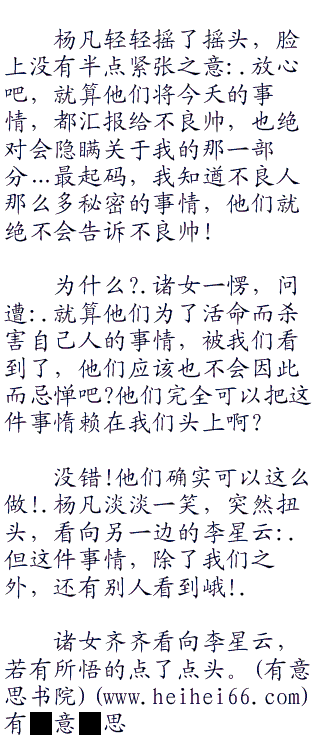 杨凡轻轻摇了摇头，脸
上没有半点紧张之意:.放心
吧，就算他们将今天的事
情，都汇报给不良帅，也绝
对会隐瞒关于我的那一部
分...最起码，我知道不良人
那么多秘密的事情，他们就
绝不会告诉不良帅!
为什么?.诸女一愣，问
遭:.就算他们为了活命而杀
害自己人的事情，被我们看
到了，他们应该也不会因此
而忌惮吧?他们完全可以把这
件事情赖在我们头上啊?
没错!他们确实可以这么
做!.杨凡淡淡一笑，突然扭
头，看向另一边的李星云:.
但这件事情，除了我们之
外，还有别人看到峨!.
诸女齐齐看向李星云，
若有所悟的点了点头。(有意
思书院)(www.heihei66.com)
有█意█思